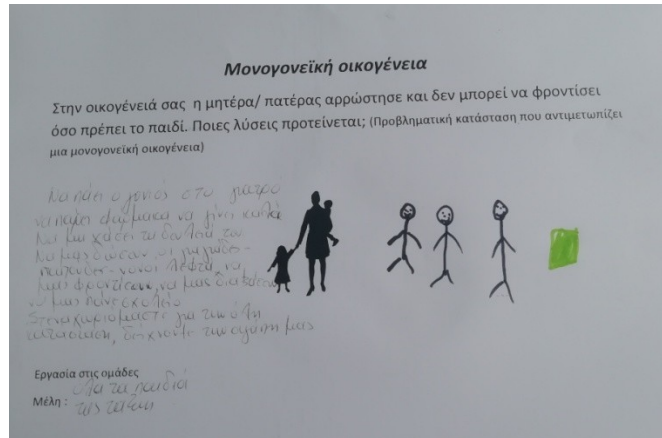 Μονογονεϊκή οικογένεια
Στην οικογένειά σας η μητέρα/ πατέρας αρρώστησε και δεν μπορεί να φροντίσει
όσο πρέπει το παιδί. Ποιες λύσεις προτείνεται; (Προβληματική κατάσταση που αντιμετωπίζει
μια μονογονεϊκή οικογένεια)
Να πάει ο γονιός στο γιατρό
να πάρει φάρμακα να γίνει καλά
Να μη χάσει τη δουλειά του
Να μας δώσουν οι γιαγιάδες-
παππούδες - νονοί λεφτά, να
μας φροντίσουν, να μας διαβάσουν
να μας πάνε σχολείο
Στεναχωριόμαστε για την όλη
κατάσταση, δείχνουμε την αγάπη μας
Εργασία στις ομάδες
Μέλη : Όλα τα παιδιά
της τάξης